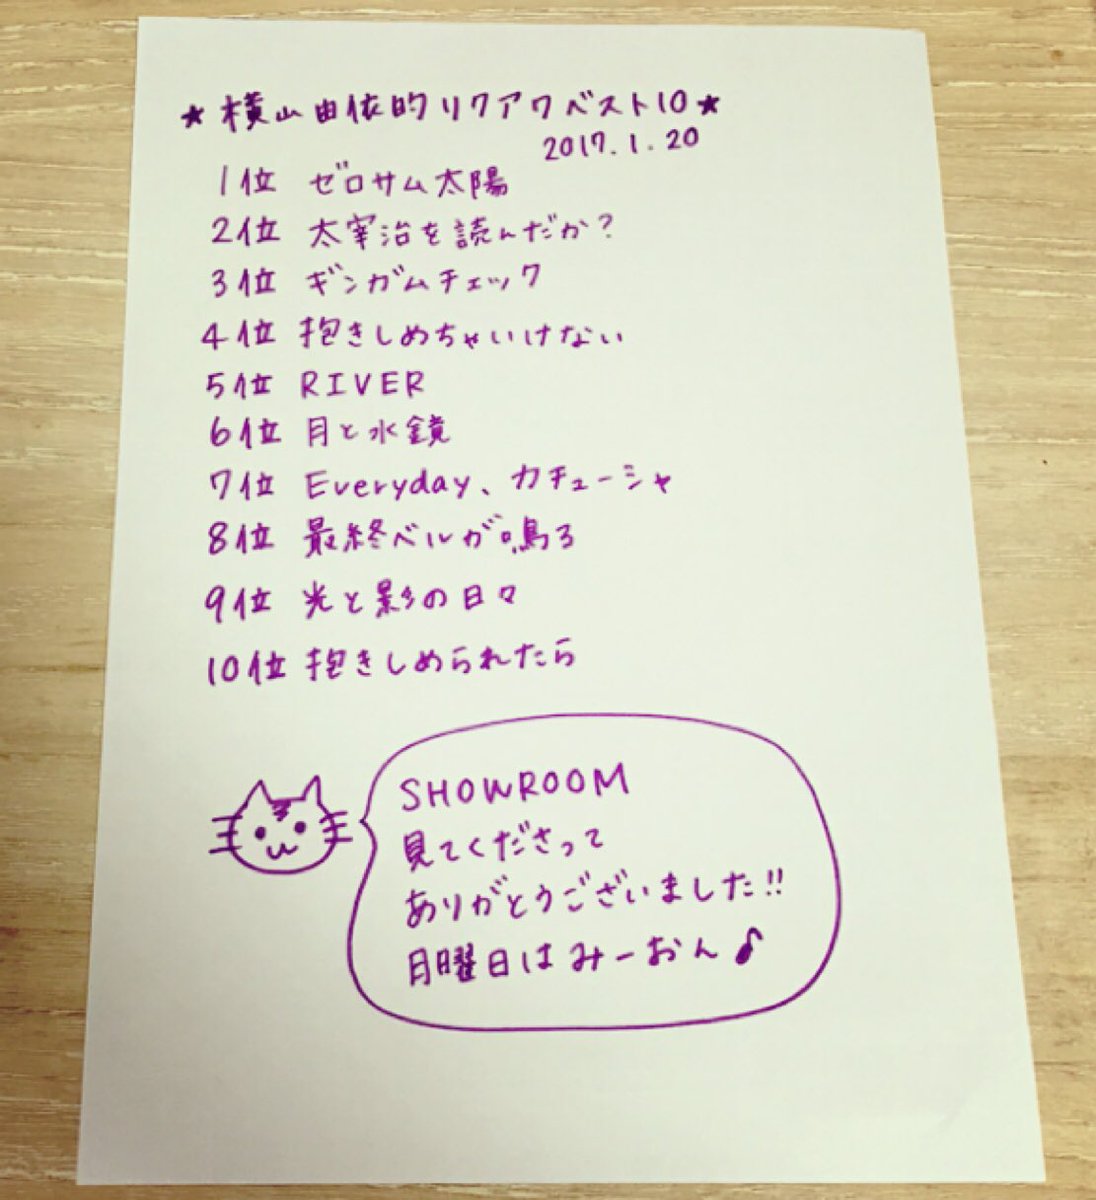 ★横山由依的リクアワベスト10★
2017.1.20
1位 ゼロサム太陽
2位 太宰治を読んだか?
3位 ギンガムチェック
4位 抱きしめちゃいけない
5位 RIVER
6位 月と水鏡
7位 Everyday、カチューシャ
8位 最終ベルが鳴る
9位 光と影の日々
10位 抱きしめられたら
SHOWROOM
見てくださって
ありがとうございました!!
月曜日はみーおん♪